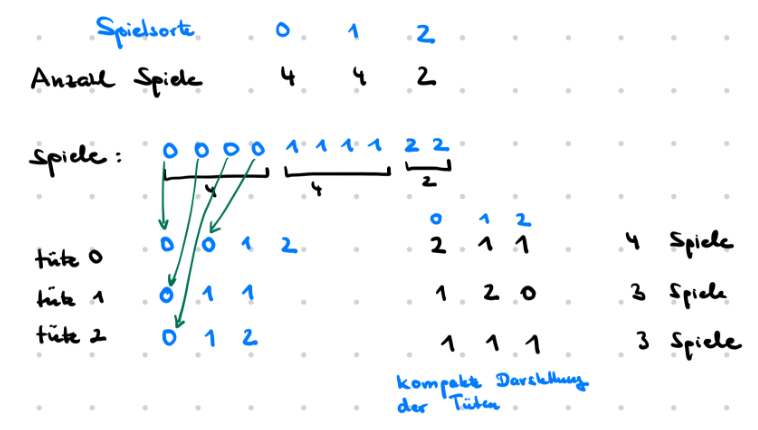 Spielsorte 0 1 2
Anzahl Spiele 4 4 2
Spiele: 0 0 0 0 1 1 1 1 2 2
4 4 2
0 1 2
tüte 0 0 0 1 2 2 1 1 4 Spiele
tüte 1 0 1 1 1 2 0 3 Spiele
tüte 2 0 1 2 1 1 1 3 Spiele
kompakte Darstellung
der Tüten